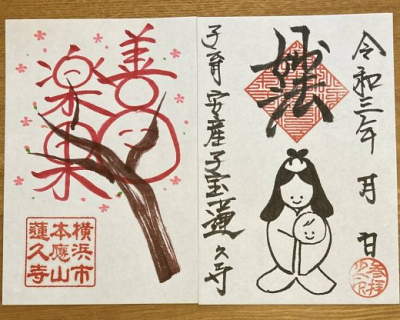 善因
楽果
横浜市
本應山
蓮久寺
令和三年 月 日
妙法
子育 安産子宝 蓮久寺